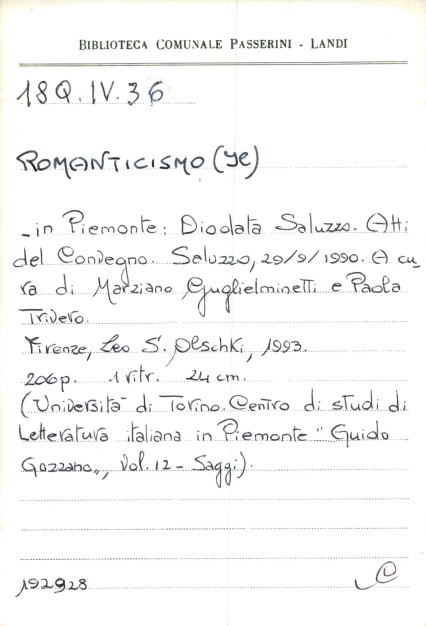 BIBLIOTECA COMUNALE PASSERINI - LANDI
18Q.IV.36
ROMANTICISMO (Je)
_in Piemonte: Diodata Saluzzo. (Atti
del Convegno. Saluzzo, 29/9/1990. A cu_
ra di Marziano Guglielminetti e Paola
Trivero.
Firenze, Leo S. Olschki, 1993.
206p. 1 ritr. 24 cm.
(Università di Torino. Centro di studi di
Letteratura italiana in Piemonte "Guido
Gozzano„, Vol. 12 - Saggi).
192928